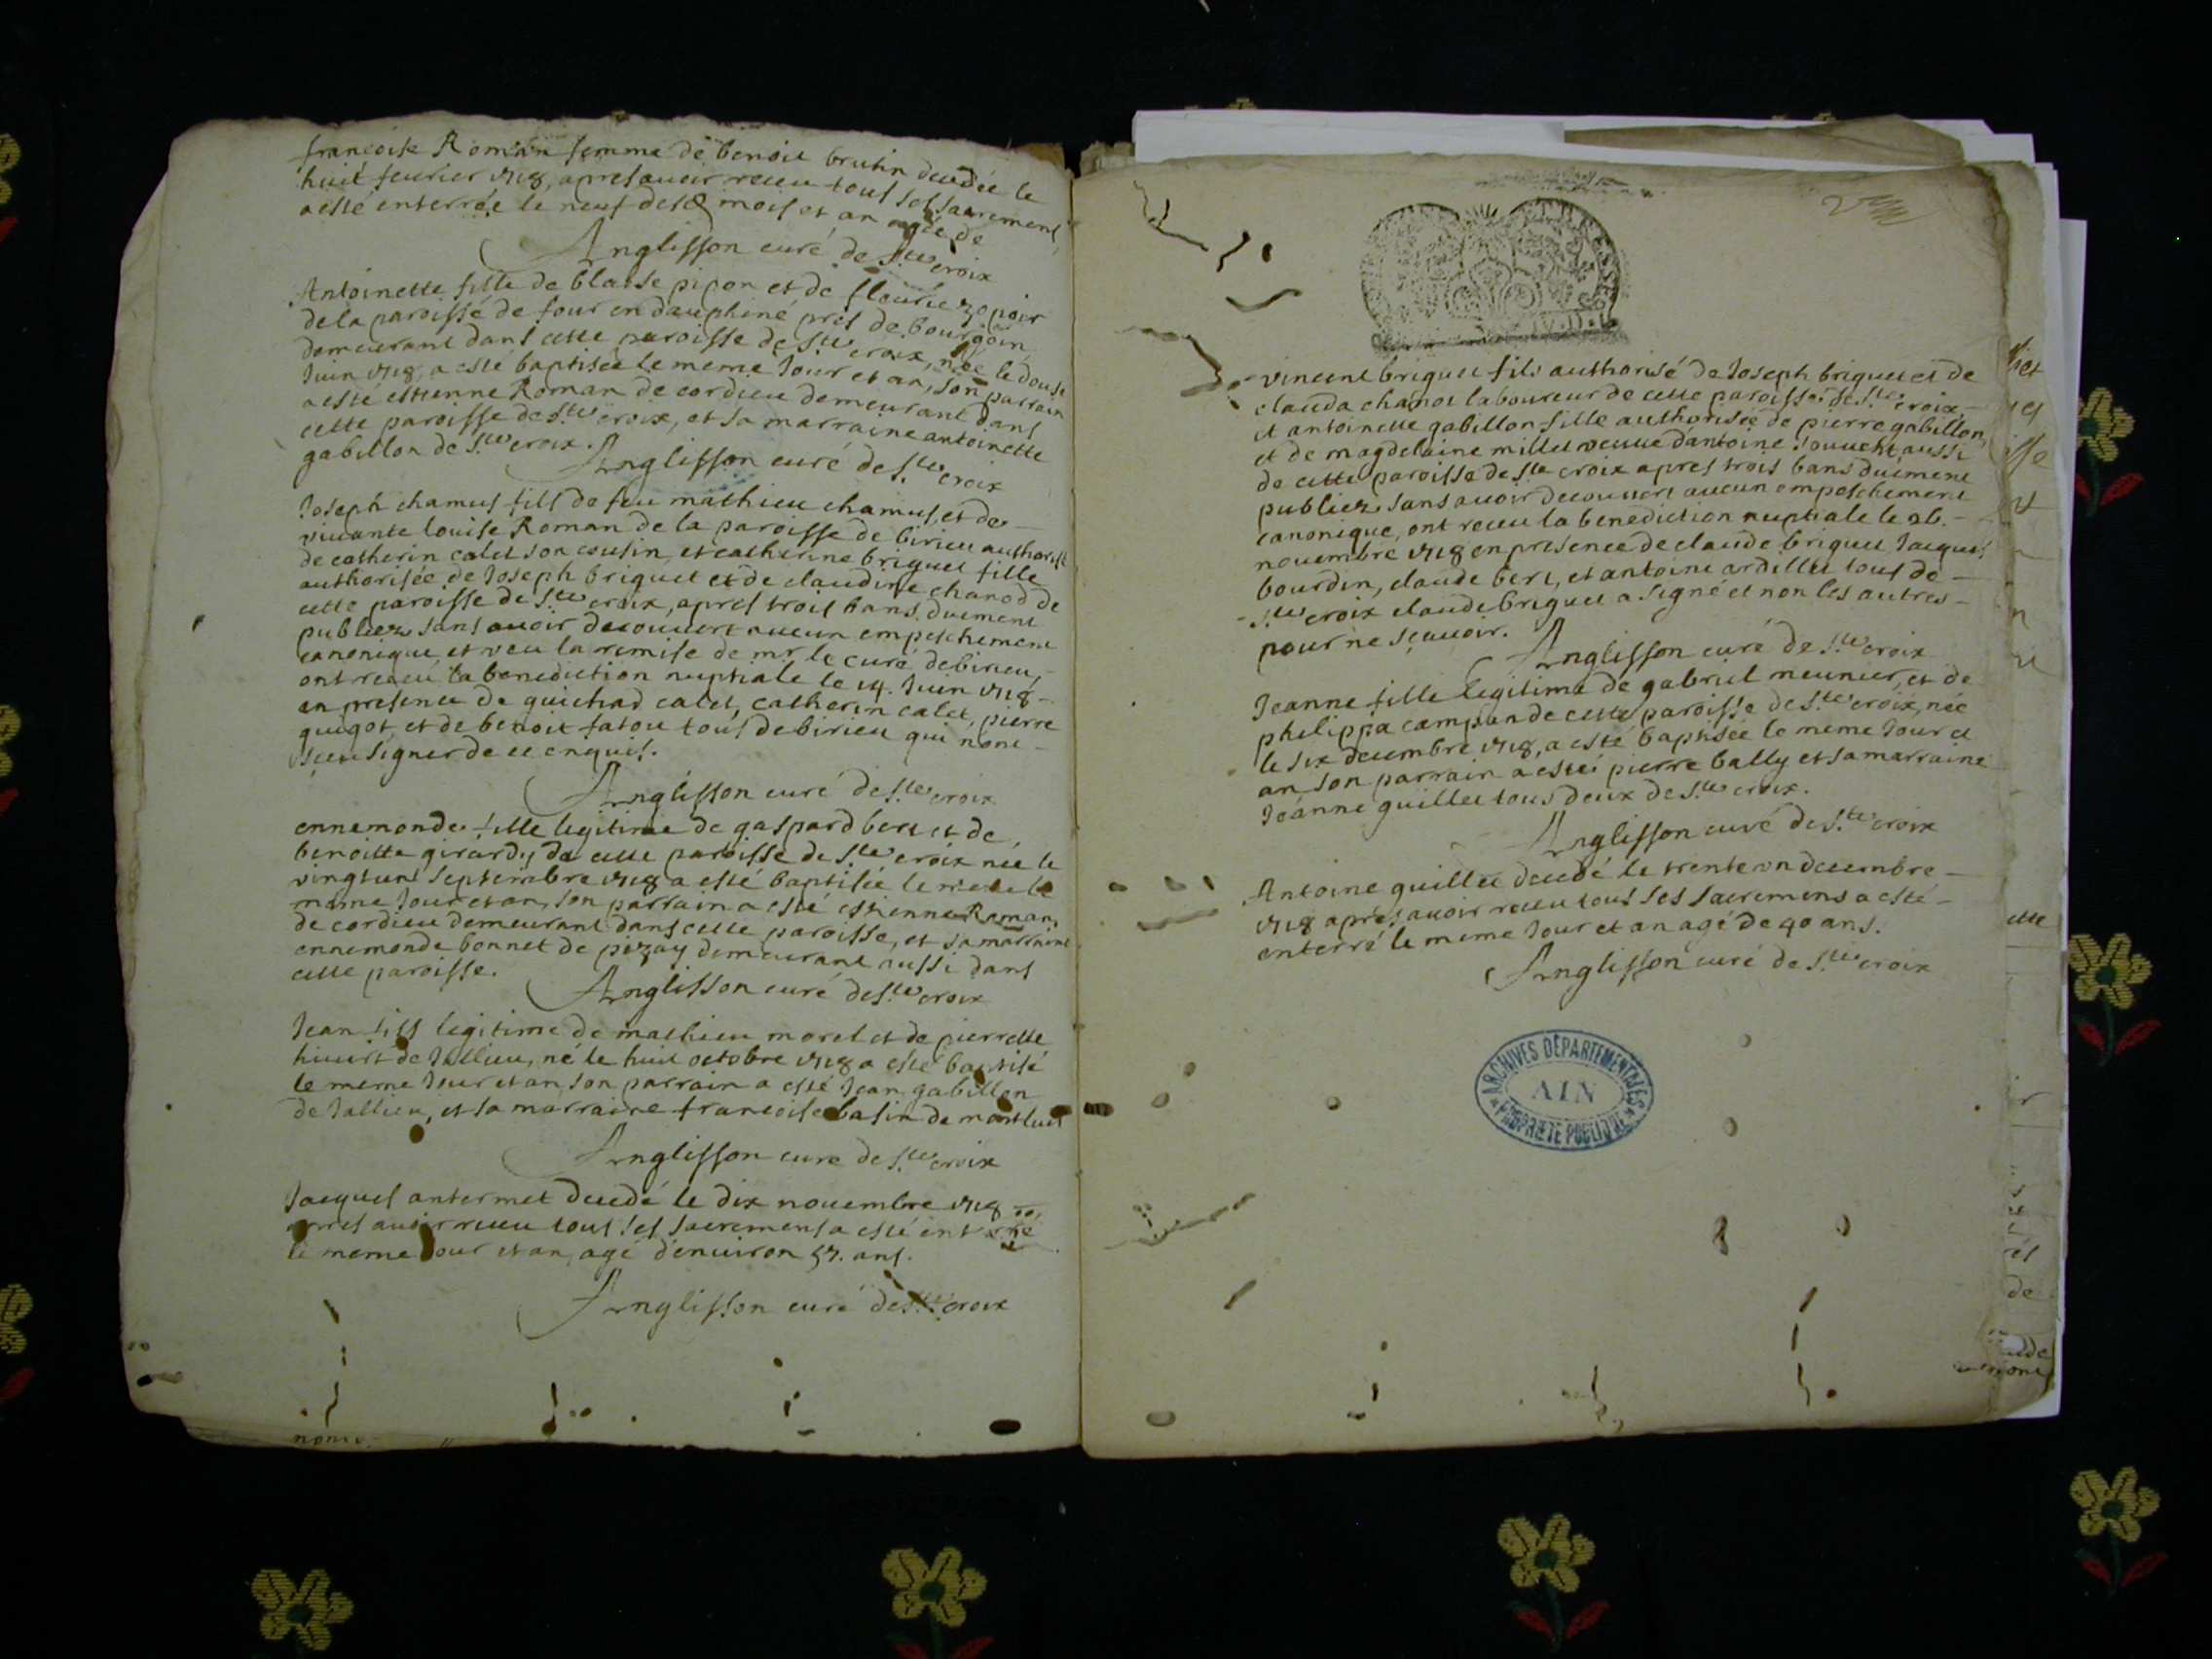 francoise Roman femme de benoit brutin decedée le
huit feurier 1718, apres auoir receu tous ses sacremens
a esté enterrée le neuf desd mois et an agée de
Anglisson curé de Ste croix
Antoinette fille de blaise pipon et de fleurie
de la paroisse de four en dauphiné pres de bourgoin
demeurant dans cette paroisse de Ste croix, née le douse
Juin 1718, a esté baptisée le meme Jour et an, son parrain
a esté estienne Roman de cordieu demeurant dans
cette paroisse de Ste croix, et sa marraine antoinette
gabillon de Ste croix. Anglisson curé de Ste croix
Joseph chamus fils de feu mathieu chamus, et de
viuante louise Roman de la paroisse de birieu authorisé
de catherin calet son cousin, et catherine briquet fille
authorisée de Joseph briquet et de claudine chanod de
cette paroisse de Ste croix, apres trois bans duement
publiez sans auoir decouuert aucun empeschement
canonique, et veu la remise de mr le curé de birieu,
ont receu la benediction nuptiale le 14. Juin 1718
en presence de guichad calet, catherin calet, pierre
guigot, et de benoit fatou tous de birieu qui n'ont
sceu signer de ce enquis.
Anglisson curé de Ste croix
ennemonde fille legitime de gaspard bert et de
benoitte girardy de cette paroisse de Ste croix née le
vingtun septembre 1718 a esté baptisée le
meme Jour et an, son parrain a esté estienne Roman
de cordieu demeurant dans cette paroisse, et sa marraine
ennemonde bonnet de pizay demeurant aussi dans
cette paroisse. Anglisson curé de Ste croix
Jean fils legitime de mathieu morel et de pierrette
de Jallieu, né le huit octobre 1718 a esté baptisé
le meme Jour et an, son parrain a esté Jean gabillon
de Jallieu, et sa marraine francoise basin de montluel
Anglisson curé de Ste croix
Jacques antermet decedé le dix nouembre 1718
apres auoir receu tous ses sacremens a esté enterré
le meme Jour et an, agé d'enuiron 57. ans.
Anglisson curé de Ste croix
vincent briquet fils authorisé de Joseph briquet et de
clauda chanot laboureur de cette paroisse de Ste croix,
et antoinette gabillon fille authorisée de pierre gabillon
et de magdelaine millet veuue d'antoine aussi
de cette paroisse de Ste croix apres trois bans duement
publiez sans auoir decouuert aucun empeschement
canonique, ont receu la benediction nuptiale le 26.
nouembre 1718 en presence de claude briquet Jacques
bourdin, claude bert, et antoine ardillet tous de
Ste croix claude briquet a signé et non les autres
pour ne sçauoir.
Anglisson curé de Ste croix
Jeanne fille legitime de gabriel meunier, et de
philippa campan de cette paroisse de Ste croix, née
le six decembre 1718, a esté baptisée le meme Jour et
an son parrain a esté pierre bally et sa marraine
Jeanne guillet tous deux de Ste croix.
Anglisson curé de Ste croix
Antoine guillet decedé le trente un decembre
1718 apres auoir receu tous ses sacremens a esté
enterré le meme Jour et an agé de 40 ans.
Anglisson curé de Ste croix
ARCHIVES DÉPARTEMENTALES
AIN
PROPRIÉTÉ PUBLIQUE